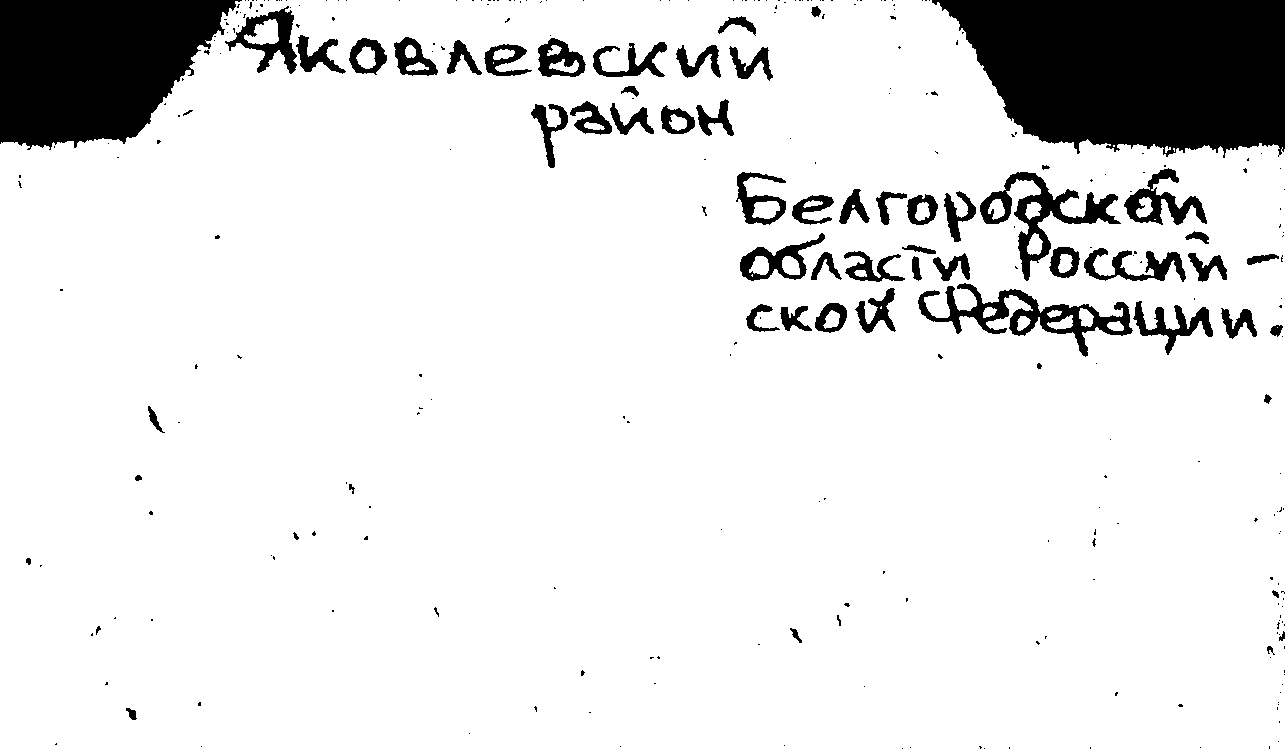 Яковлевский
район
Белгородской
области Россий-
ской Федерации.